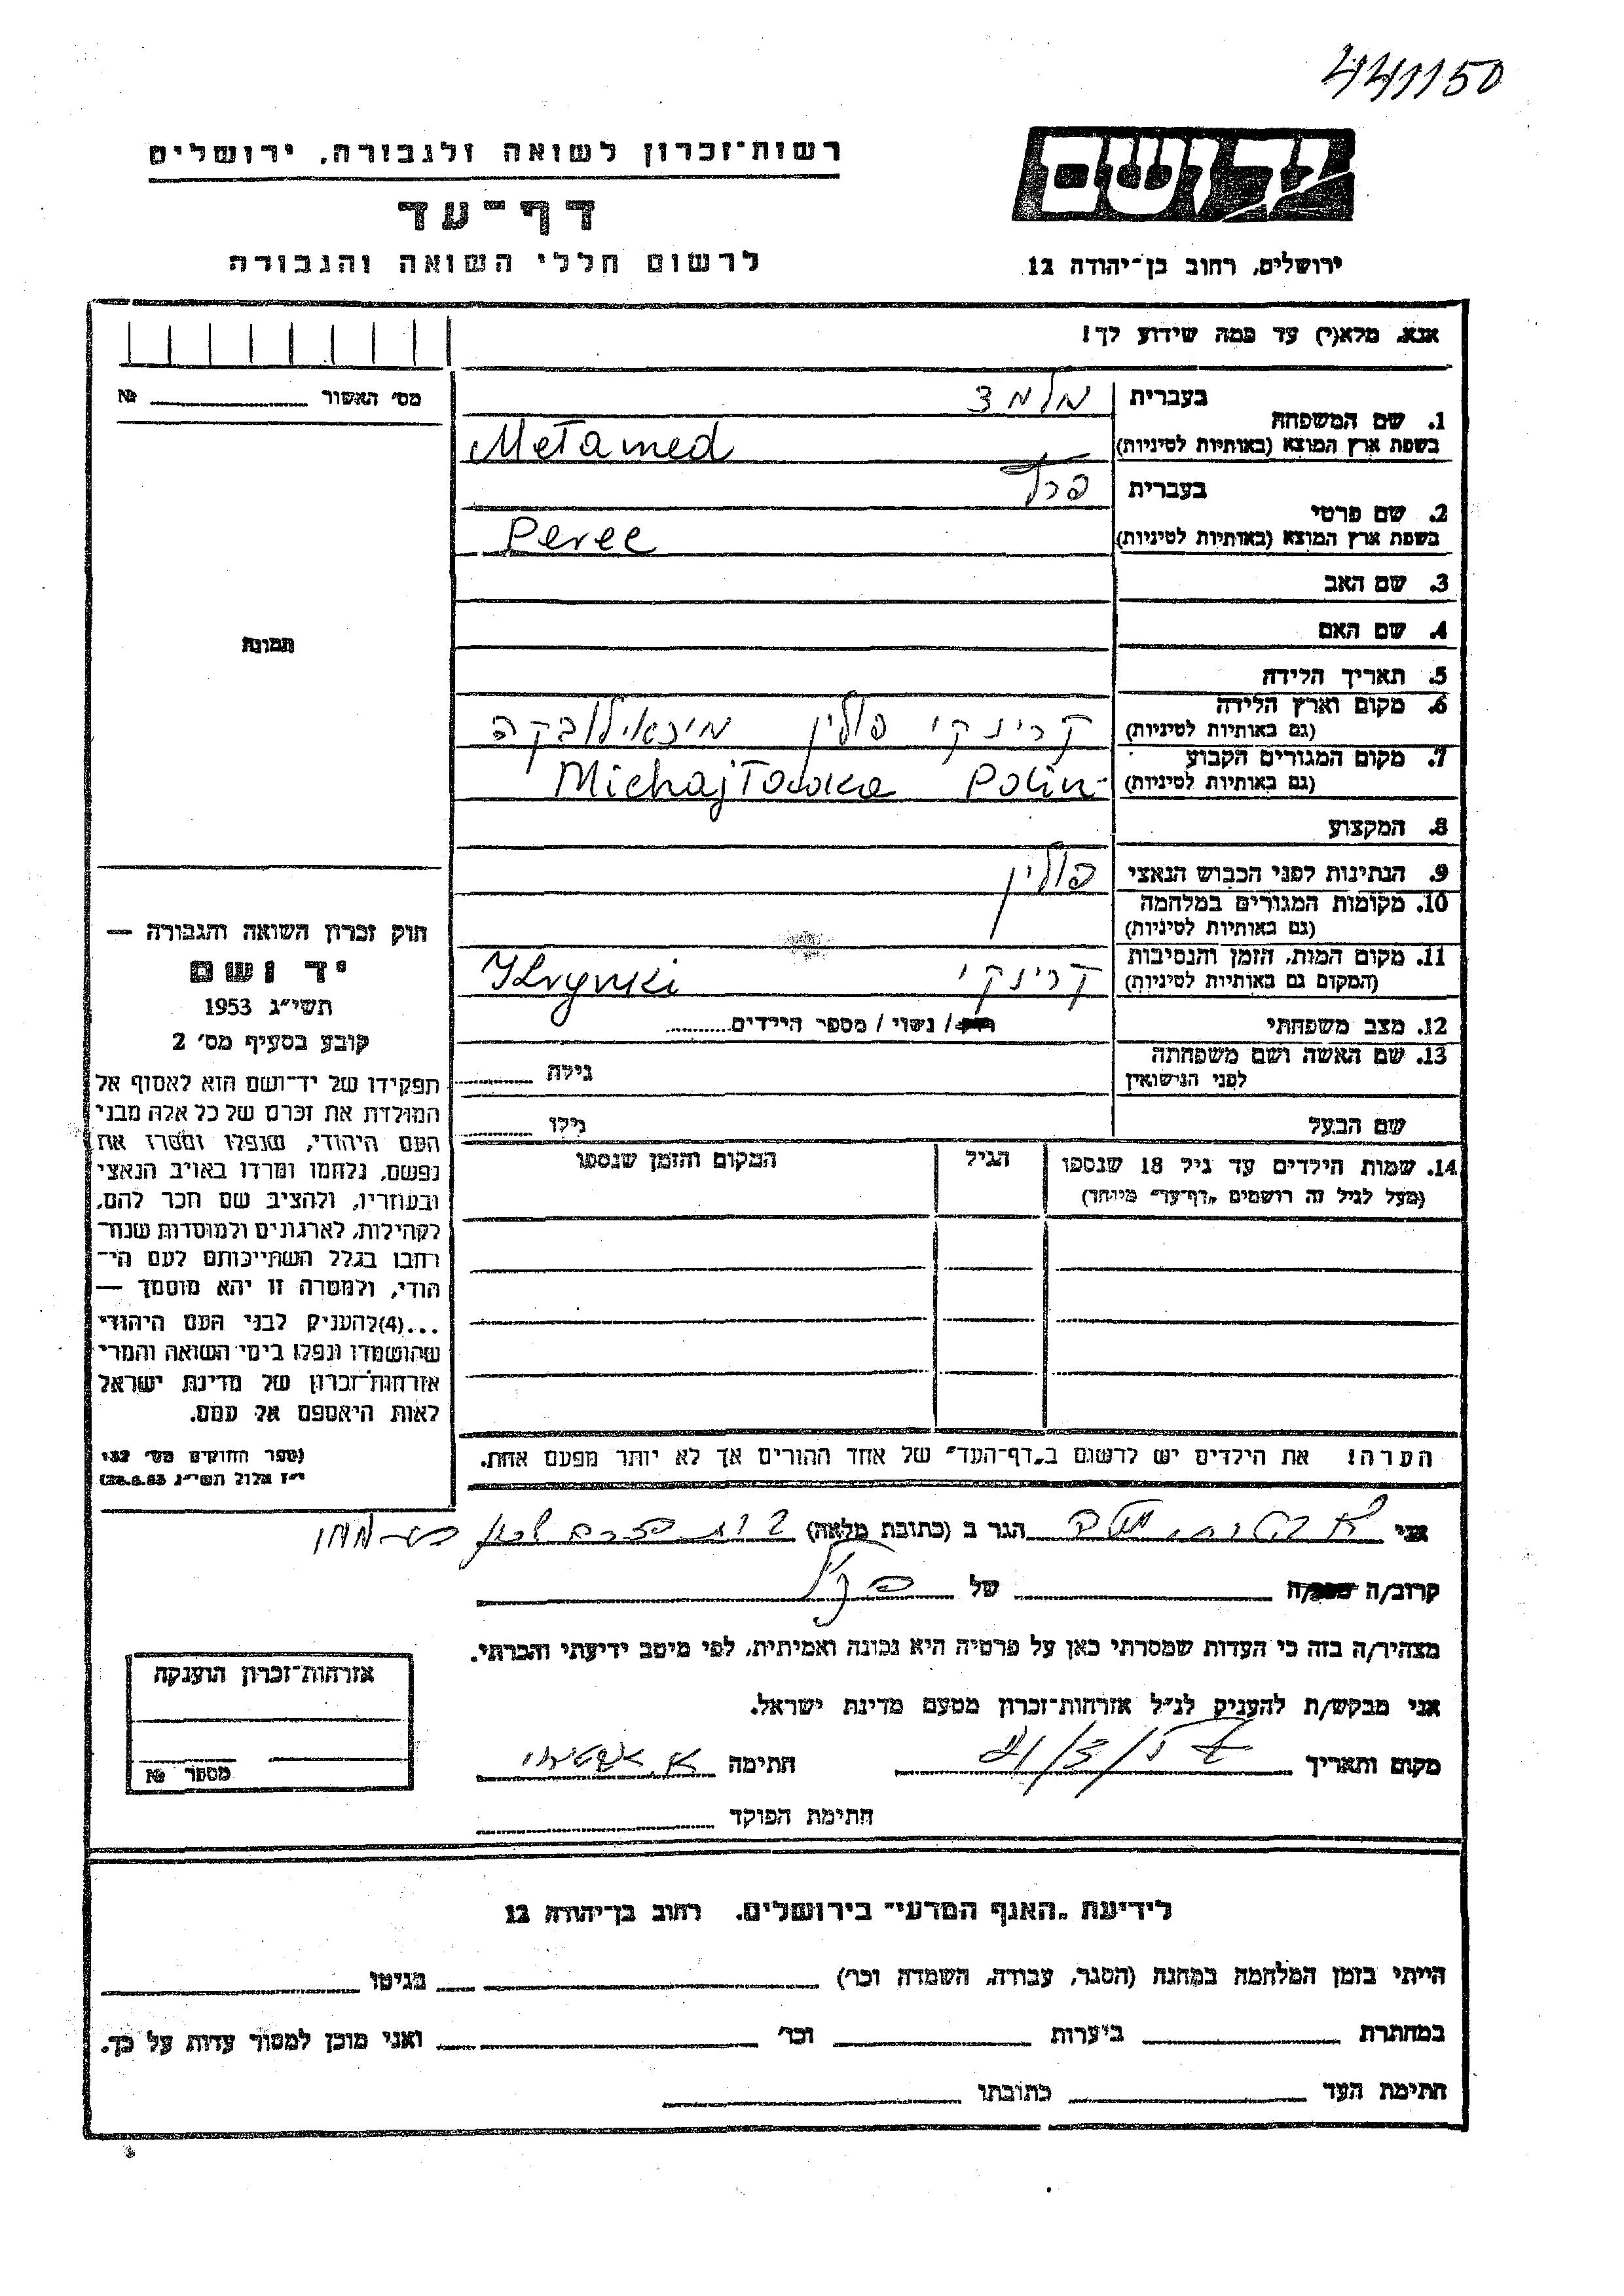 441150
יד ושם
רשות־זכרון לשואה ולגבורה, ירושלים
דף־עד
לרשום חללי השואה והגבורה
ירושלים, רחוב בן־יהודה 12
אנא, מלא(י) עד כמה שידוע לך!
מס׳ האשור №
1. שם המשפחה בעברית מלמד
בשפת ארץ המוצא (באותיות לטיניות) Metamed
2. שם פרטי בעברית פרל
בשפת ארץ המוצא (באותיות לטיניות) Peree
3. שם האב
4. שם האם
תמונה
5. תאריך הלידה
6. מקום וארץ הלידה (גם באותיות לטיניות) קרינקי פולין מיכאילובקה
7. מקום המגורים הקבוע (גם באותיות לטיניות) MichajTowka Polin
8. המקצוע
9. הנתינות לפני הכבוש הנאצי פולין
10. מקומות המגורים במלחמה (גם באותיות לטיניות)
11. מקום המות, הזמן והנסיבות (המקום גם באותיות לטיניות) קרינקי Krynki
12. מצב משפחתי / נשוי / מספר הילדים
13. שם האשה ושם משפחתה לפני הנישואין גילה
שם הבעל גילו
14. שמות הילדים עד גיל 18 שנספו הגיל המקום והזמן שנספו
(מעל לגיל זה רושמים „דף־עד״ מיוחד)
חוק זכרון השואה והגבורה —
יד ושם
תשי״ג 1953
קובע בסעיף מס׳ 2
תפקידו של יד־ושם הוא לאסוף אל
המולדת את זכרם של כל אלה מבני
העם היהודי, שנפלו ומסרו את
נפשם, נלחמו ומרדו באויב הנאצי
ובעוזריו, ולהציב שם וזכר להם,
לקהילות, לארגונים ולמוסדות שנח־
רבו בגלל השתייכותם לעם הי־
הודי, ולמטרה זו יהא מוסמך —
...(4) להעניק לבני העם היהודי
שהושמדו ונפלו בימי השואה והמרי
אזרחות־זכרון של מדינת ישראל
לאות היאספם אל עמם.
(ספר החוקים מס׳ 132
י״ז אלול תשי״ג 28.8.53)
הערה! את הילדים יש לרשום ב„דף־העד״ של אחד ההורים אך לא יותר מפעם אחת.
אני הגר ב (כתובת מלאה)
קרוב/ה של
מצהיר/ה בזה כי העדות שמסרתי כאן על פרטיה היא נכונה ואמיתית, לפי מיטב ידיעתי והכרתי.
אני מבקש/ת להעניק לנ״ל אזרחות־זכרון מטעם מדינת ישראל.
מקום ותאריך חתימה
חתימת הפוקד
אזרחות־זכרון הוענקה
מספר №
לידיעת „האגף המדעי״ בירושלים, רחוב בן־יהודה 12
הייתי בזמן המלחמה במחנה (הסגר, עבודה, השמדה וכו׳) בגיטו
במחתרת ביערות וכו׳ ואני מוכן למסור עדות על כך.
חתימת העד כתובתו